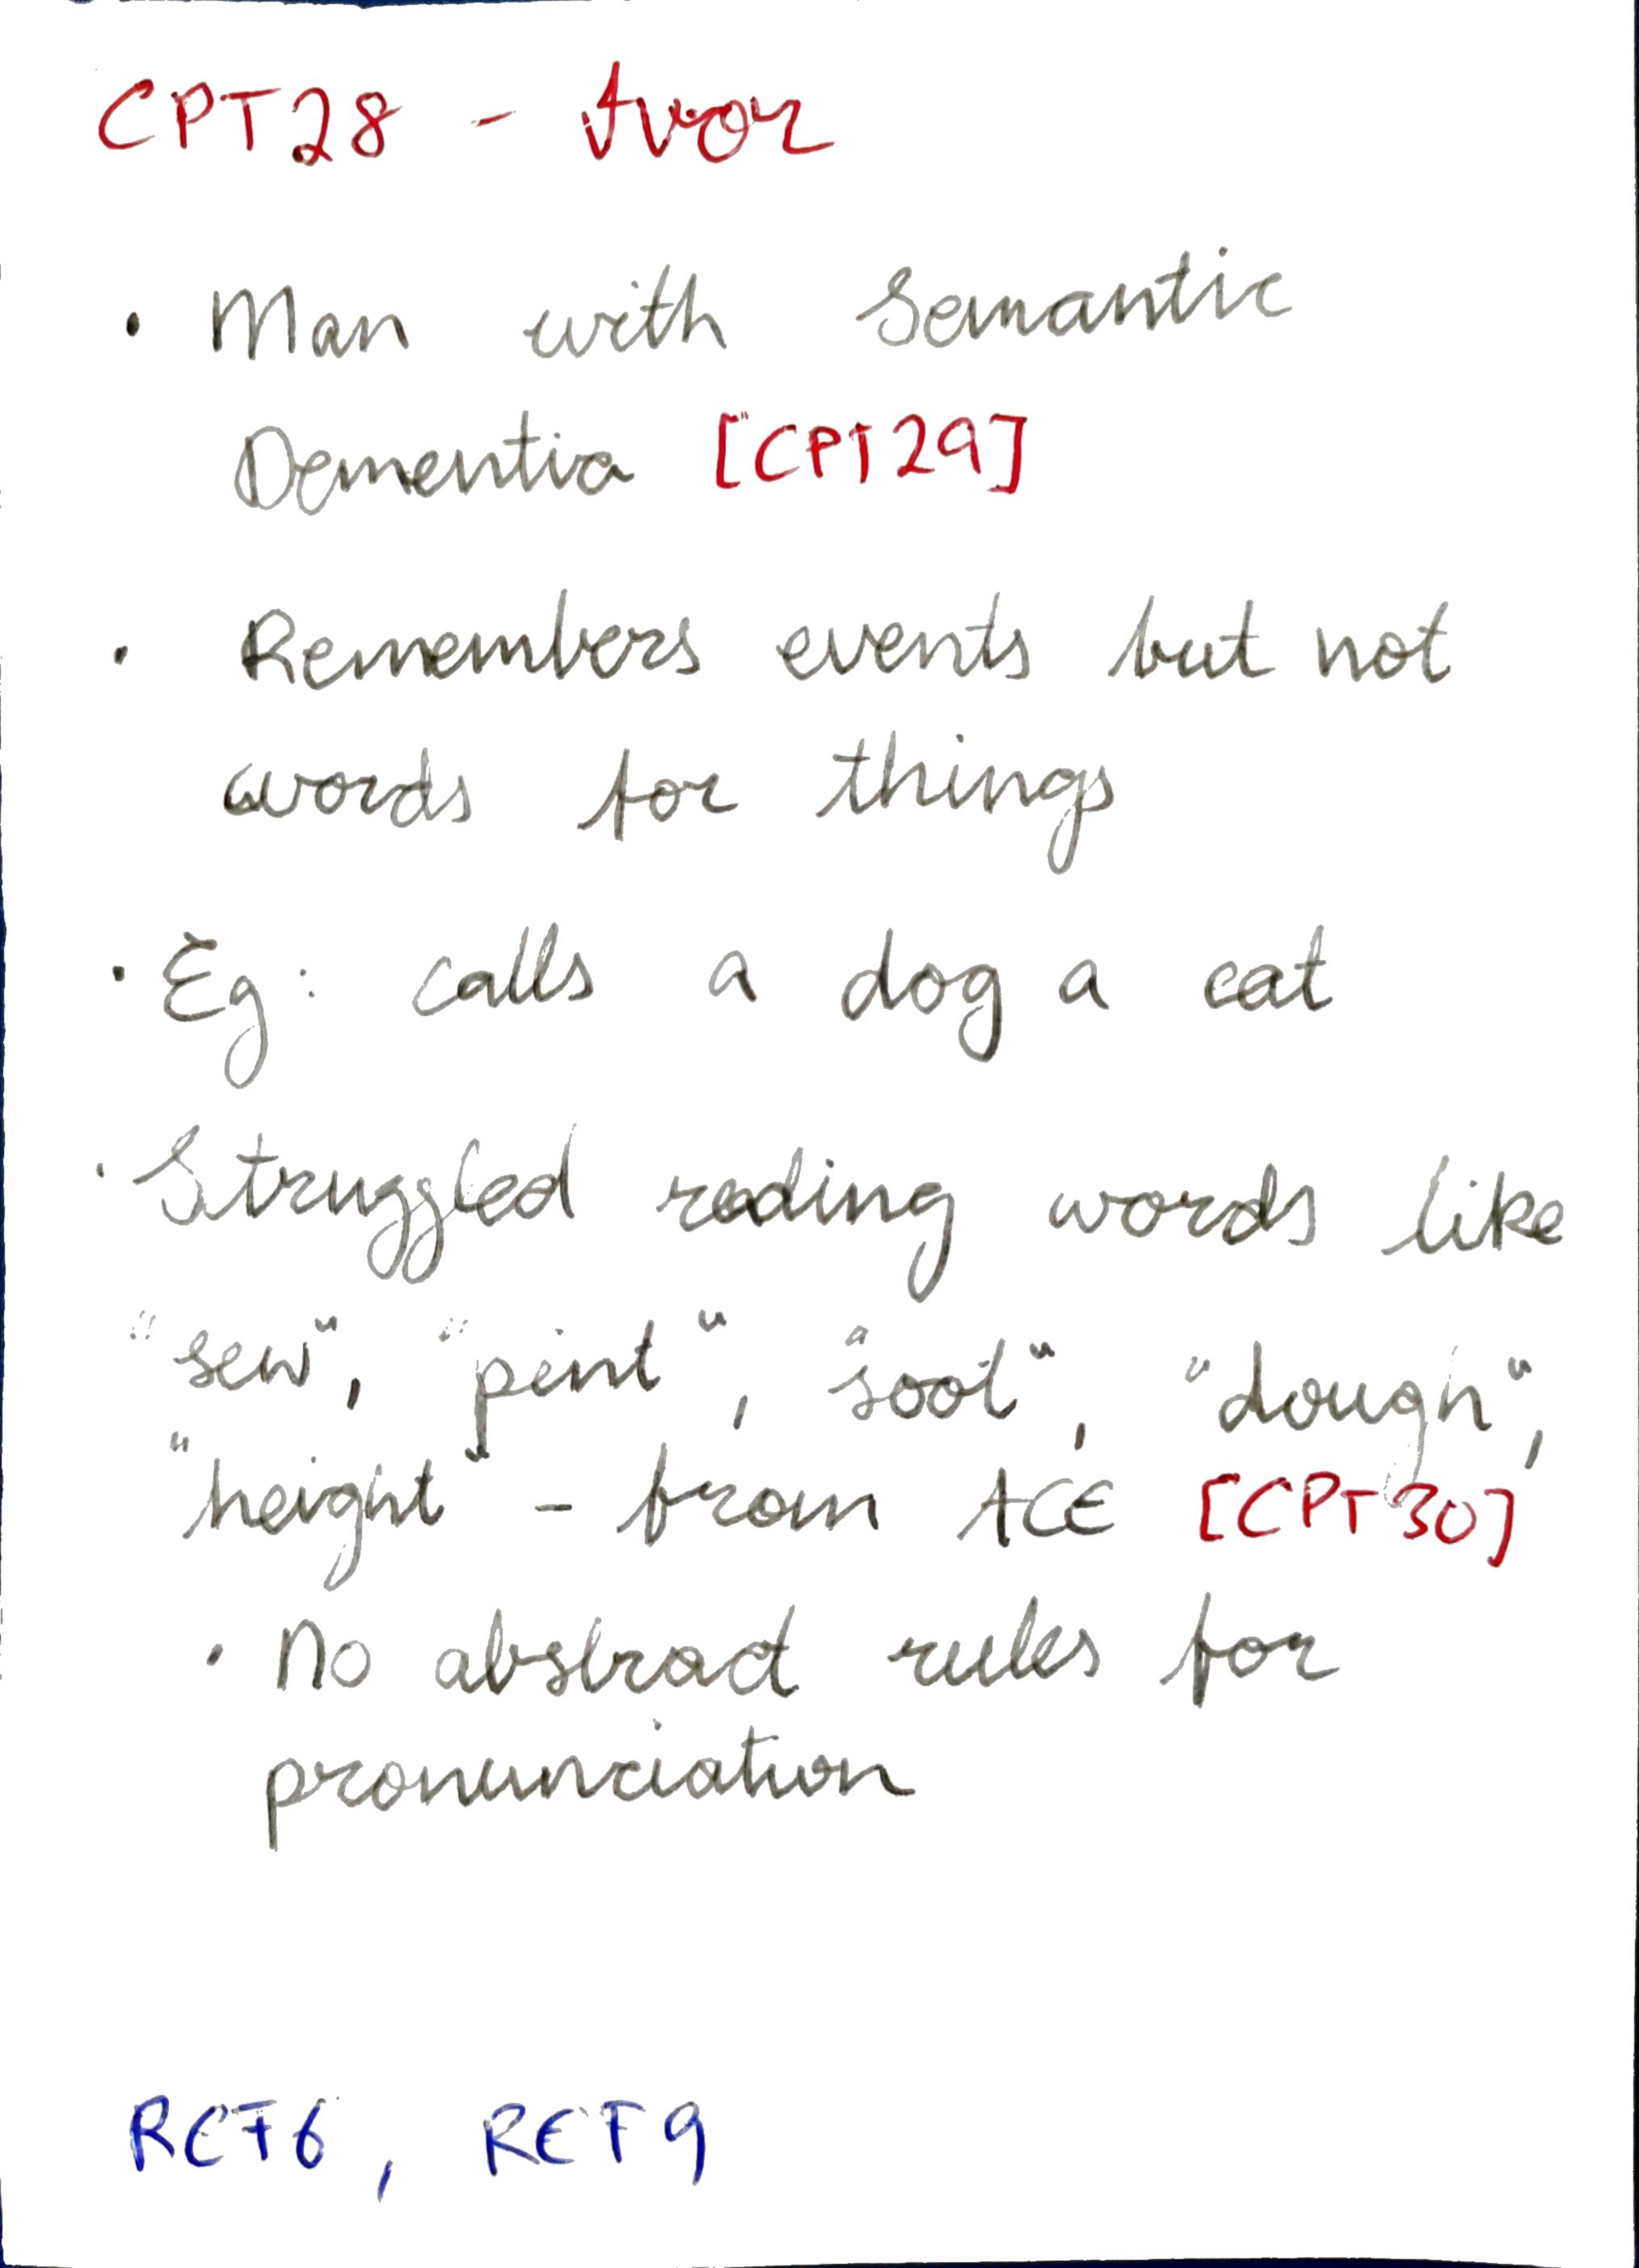 CPT28 - Ivor
• Man with Semantic
Dementia [CPT29]
• Remembers events but not
words for things
• Eg: calls a dog a cat
• Struggled reading words like
"sew", "pint", "soot", "dough",
"height" - from ACE [CPT30]
• No abstract rules for
pronunciation
REF6, REF9